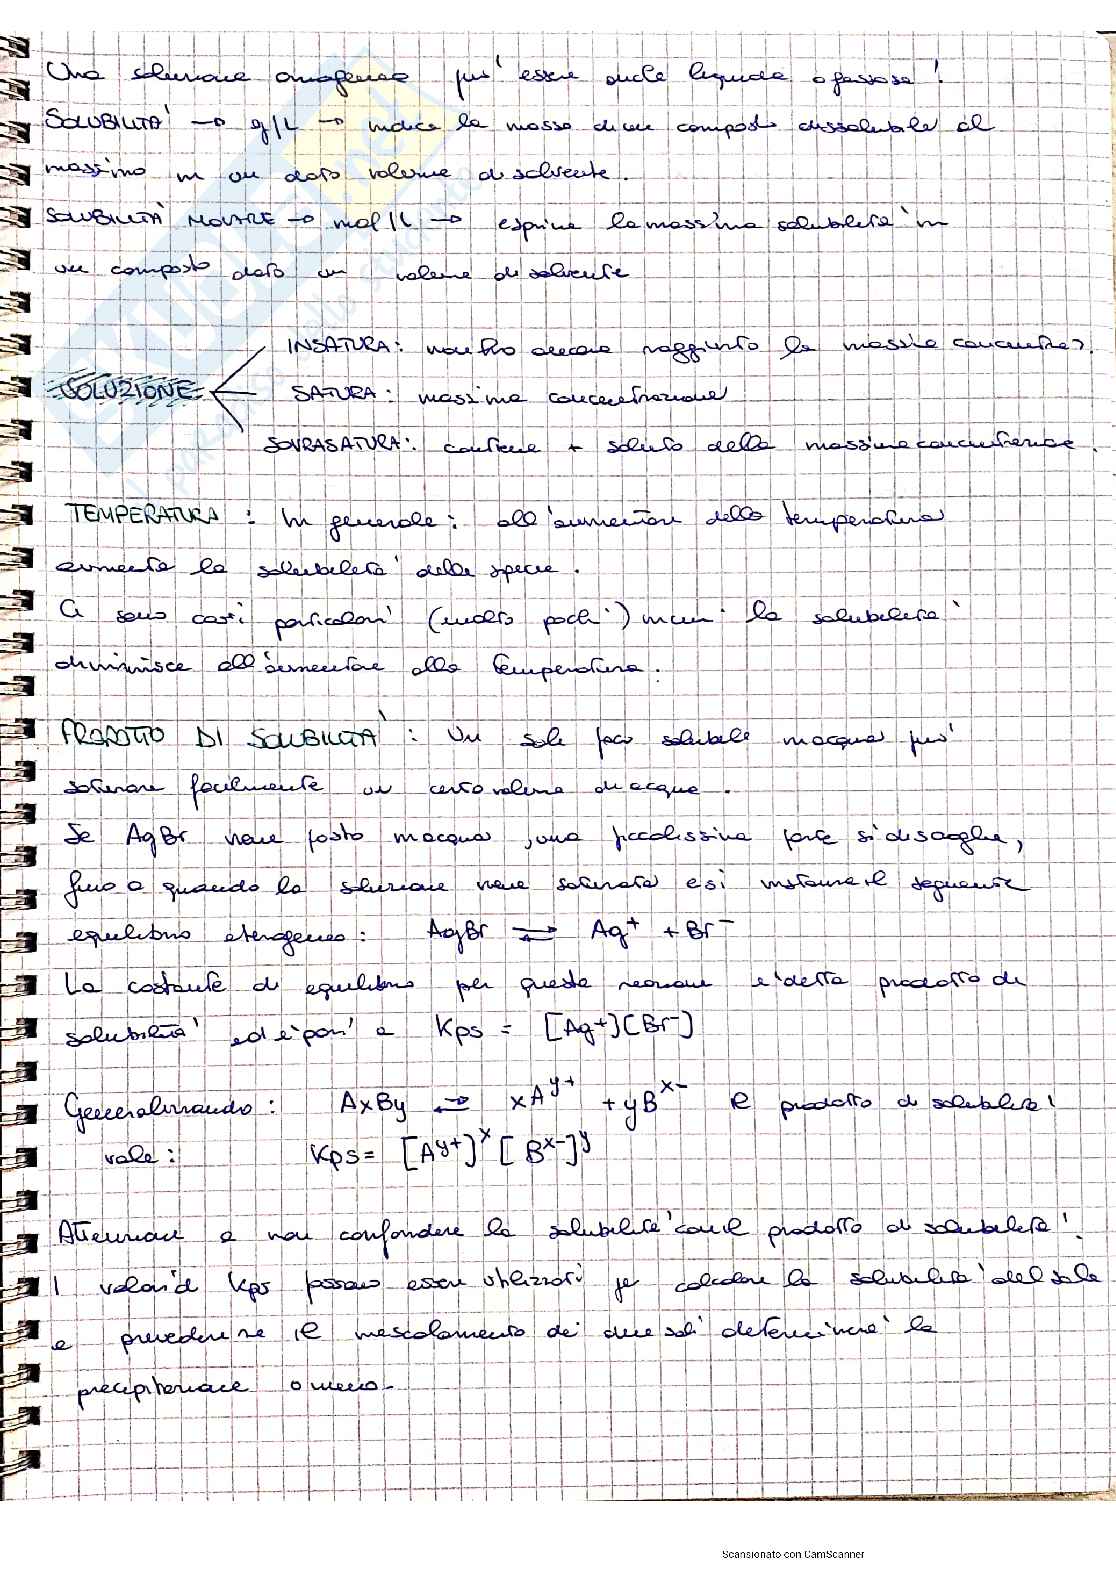 Una soluzione omogenea può essere anche liquida o gassosa!
SOLUBILITÀ → g/L → indica la massa di un composto dissolubile al
massimo in un dato volume di solvente.
SOLUBILITÀ MOLARE → mol/L → esprime la massima solubilità in
un composto dato un volume di solvente
INSATURA: non ho ancora raggiunto la massima concentraz.
SOLUZIONE
SATURA: massima concentrazione
SOVRASATURA: contiene + soluto della massima concentrazione.
TEMPERATURA: In generale: all'aumentare della temperatura
aumenta la solubilità delle specie.
Ci sono casi particolari (molto pochi) in cui la solubilità
diminuisce all'aumentare alla temperatura.
PRODOTTO DI SOLUBILITÀ: Un sale poco solubile in acqua può
saturare facilmente un certo volume di acqua.
Se AgBr viene posto in acqua, una piccolissima parte si discoglie,
fino a quando la soluzione viene saturata e si instaura il seguente
equilibrio eterogeneo: AgBr ⇌ Ag⁺ + Br⁻
La costante di equilibrio per questa reazione è detta prodotto di
solubilità ed è pari a Kps = [Ag+][Br⁻]
Generalizzando: AxBy ⇌ xA^y+ + yB^x- il prodotto di solubilità
vale: Kps = [A^y+]^x [B^x-]^y
Attenzione a non confondere la solubilità con il prodotto di solubilità!
I valori di Kps possono essere utilizzati per calcolare la solubilità del sale
e prevedere se il mescolamento dei due sali determinerà la
precipitazione o meno.
Scansionato con CamScanner